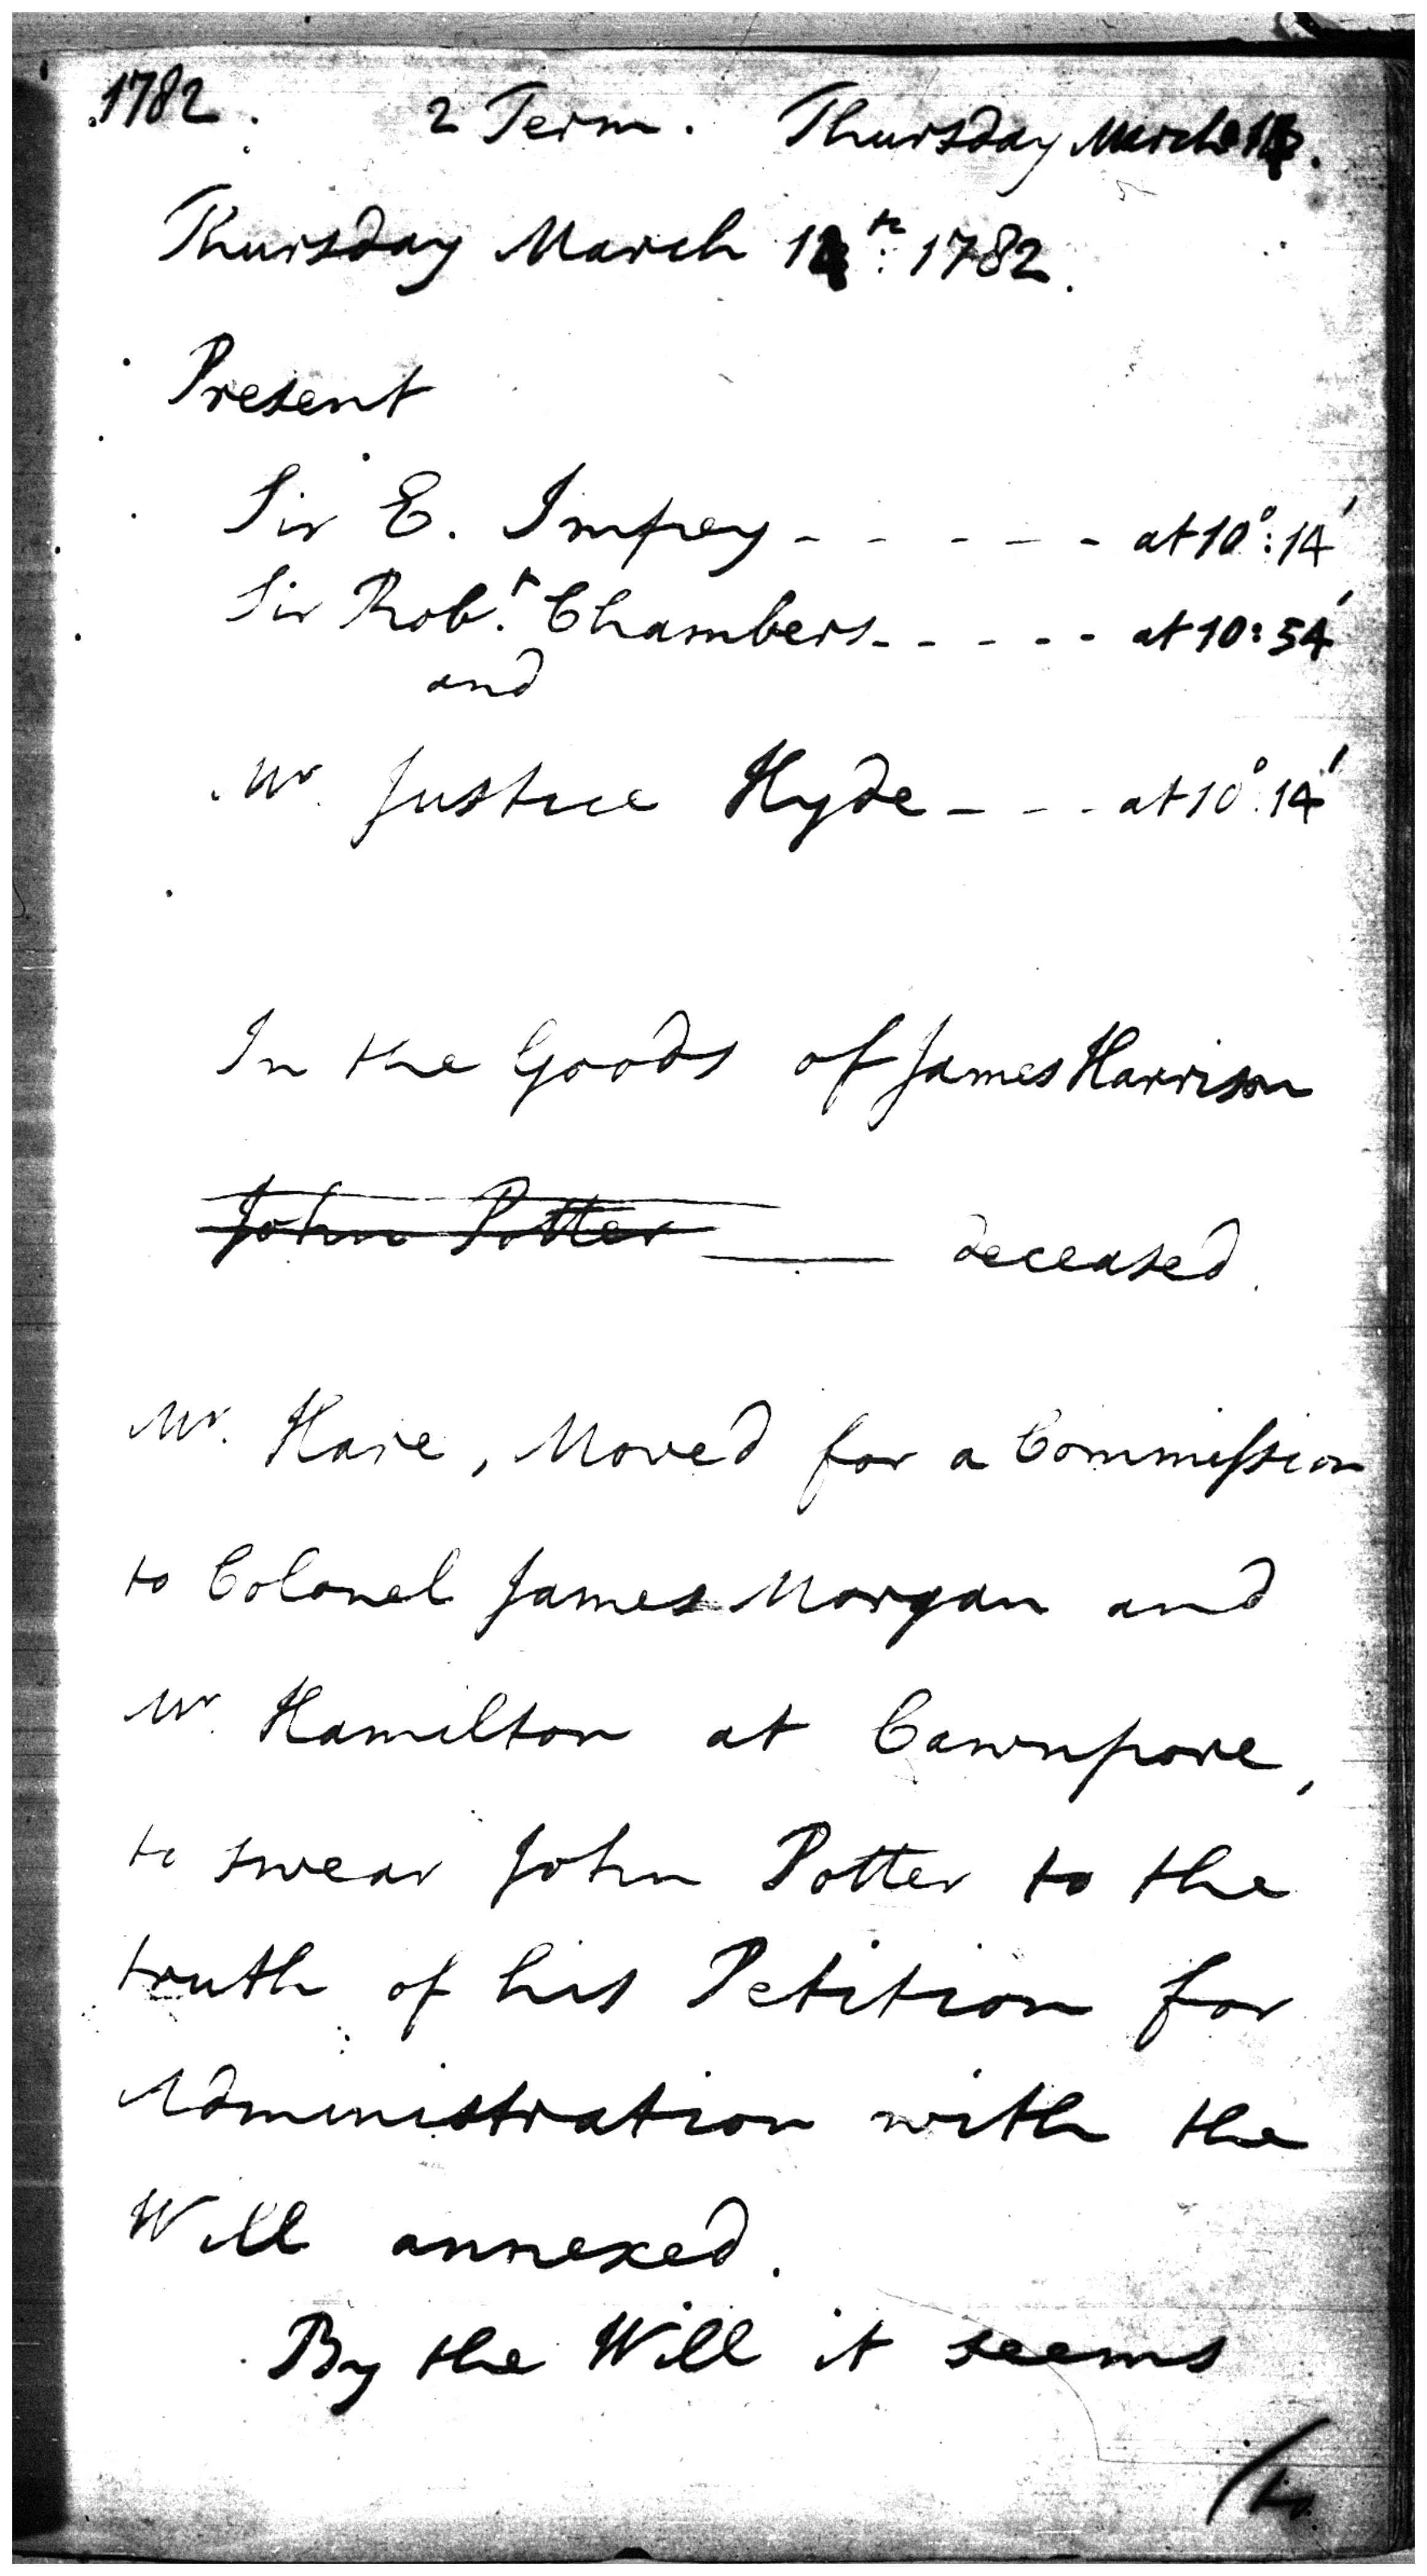 1782. 2 Term. Thursday March 14.
Thursday March 14th: 1782.
Present
Sir E. Impey - - - - - at 10°: 14'
Sir Robt. Chambers - - - - - at 10: 54'
and
Mr. Justice Hyde - - - at 10°: 14'
In the Goods of James Harrison
John Potter ——— deceased.
Mr. Hare, Moved for a Commission
to Colonel James Morgan and
Mr. Hamilton at Cawnpore,
to swear John Potter to the
truth of his Petition for
Administration with the
Will annexed.
By the Will it seems
/to